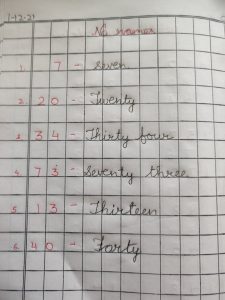 1-12-21
No names
1. 7 - Seven
2. 20 - Twenty
3. 34 - Thirty four
4. 73 - Seventy three
5. 13 - Thirteen
6. 40 - Forty